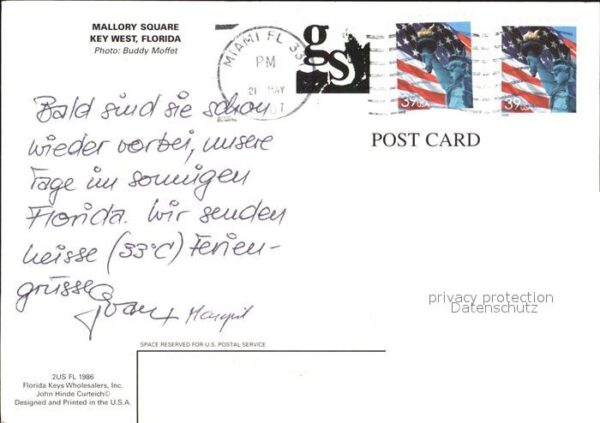 MALLORY SQUARE
KEY WEST, FLORIDA
Photo: Buddy Moffet
MIAMI FL 33
PM
21 MAY
gs
39 USA
39 USA
POST CARD
Bald sind sie schon
wieder vorbei, unsere
Tage im sonnigen
Florida. Wir senden
heisse (33°C) Ferien-
grüsse
+
privacy protection
Datenschutz
SPACE RESERVED FOR U.S. POSTAL SERVICE
2US FL 1986
Florida Keys Wholesalers, Inc.
John Hinde Curteich©
Designed and Printed in the U.S.A.